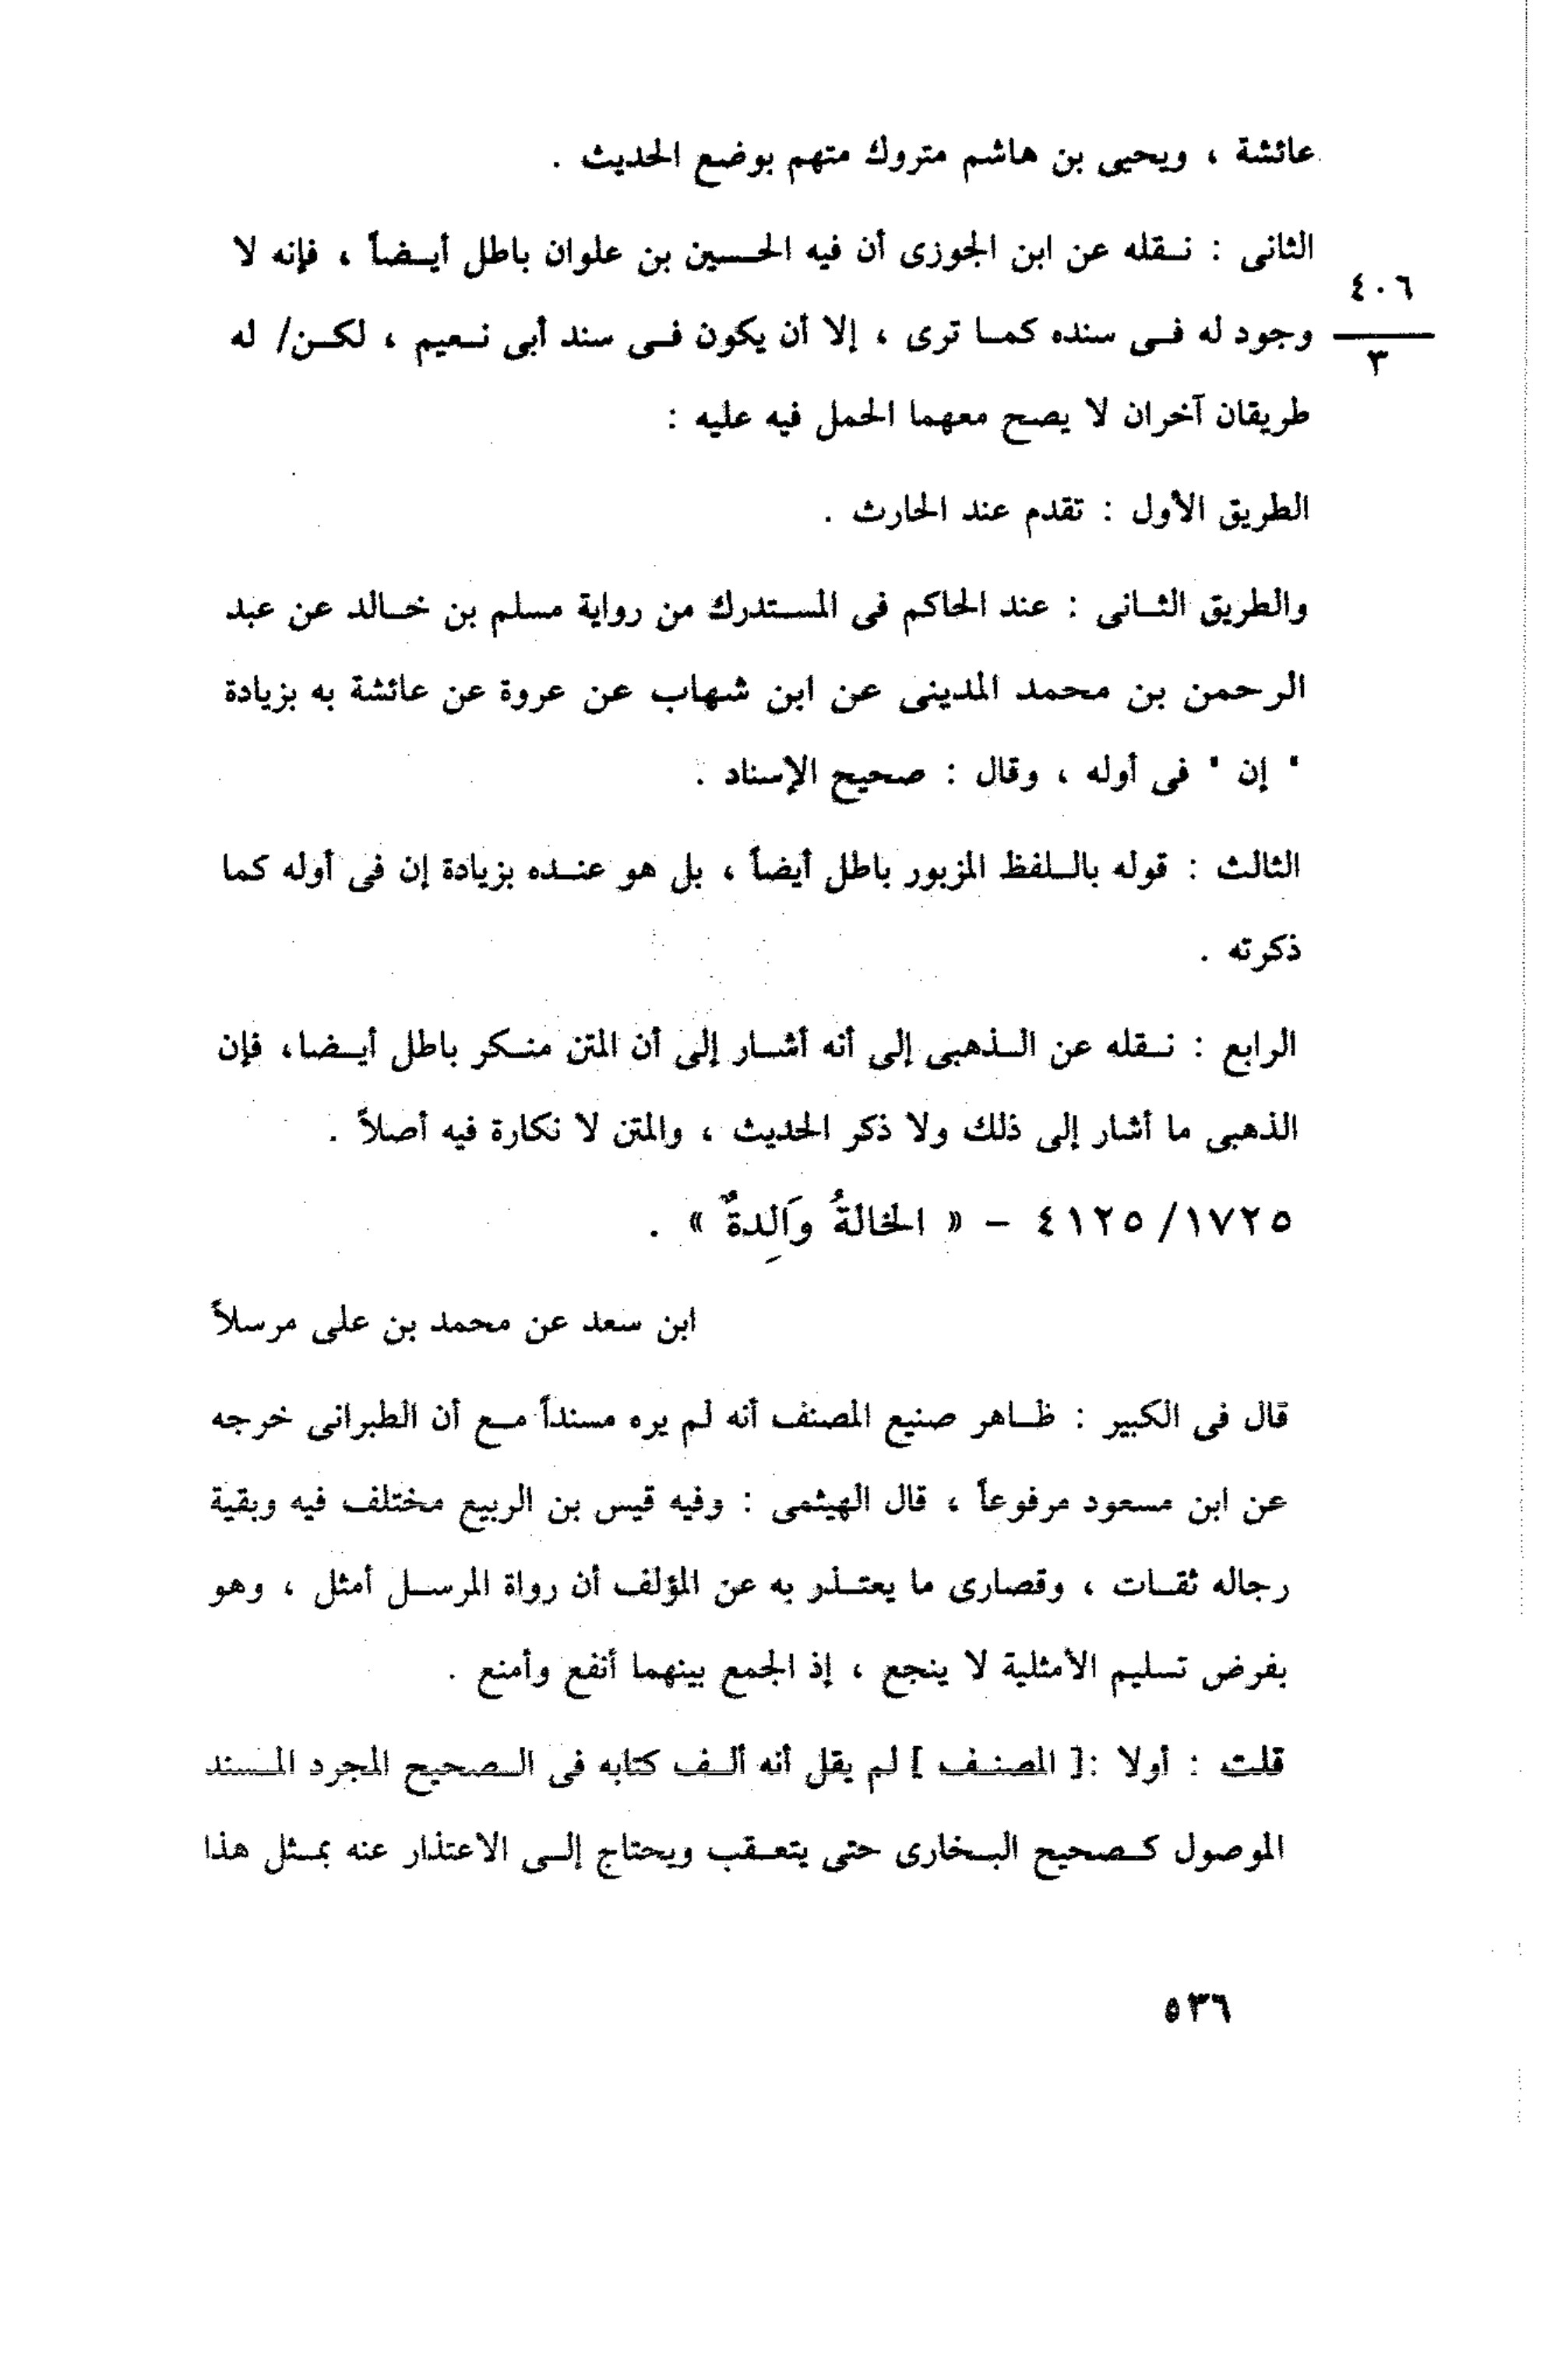 عائشة ، ويحيى بن هاشم متروك متهم بوضع الحديث .
الثانى : نقله عن ابن الجوزى أن فيه الحسين بن علوان باطل أيضاً ، فإنه لا
٤٠٦
وجود له فى سنده كما ترى ، إلا أن يكون فى سند أبى نعيم ، لكن/ له
٣
طريقان آخران لا يصح معهما الحمل فيه عليه :
الطريق الأول : تقدم عند الحارث .
والطريق الثانى : عند الحاكم فى المستدرك من رواية مسلم بن خالد عن عبد
الرحمن بن محمد المدينى عن ابن شهاب عن عروة عن عائشة به بزيادة
" إن " فى أوله ، وقال : صحيح الإسناد .
الثالث : قوله باللفظ المزبور باطل أيضاً ، بل هو عنده بزيادة إن فى أوله كما
ذكرته .
الرابع : نقله عن الذهبى إلى أنه أشار إلى أن المتن منكر باطل أيضا، فإن
الذهبى ما أشار إلى ذلك ولا ذكر الحديث ، والمتن لا نكارة فيه أصلاً .
١٧٢٥/ ٤١٢٥ – « الخالةُ وَالِدةٌ » .
ابن سعد عن محمد بن على مرسلاً
قال فى الكبير : ظاهر صنيع المصنف أنه لم يره مسنداً مع أن الطبرانى خرجه
عن ابن مسعود مرفوعاً ، قال الهيثمى : وفيه قيس بن الربيع مختلف فيه وبقية
رجاله ثقات ، وقصارى ما يعتذر به عن المؤلف أن رواة المرسل أمثل ، وهو
بفرض تسليم الأمثلية لا ينجع ، إذ الجمع بينهما أنفع وأمنع .
قلت : أولا :[ المصنف ] لم يقل أنه ألف كتابه فى الصحيح المجرد المسند
الموصول كصحيح البخارى حتى يتعقب ويحتاج إلى الاعتذار عنه بمثل هذا
٥٣٦